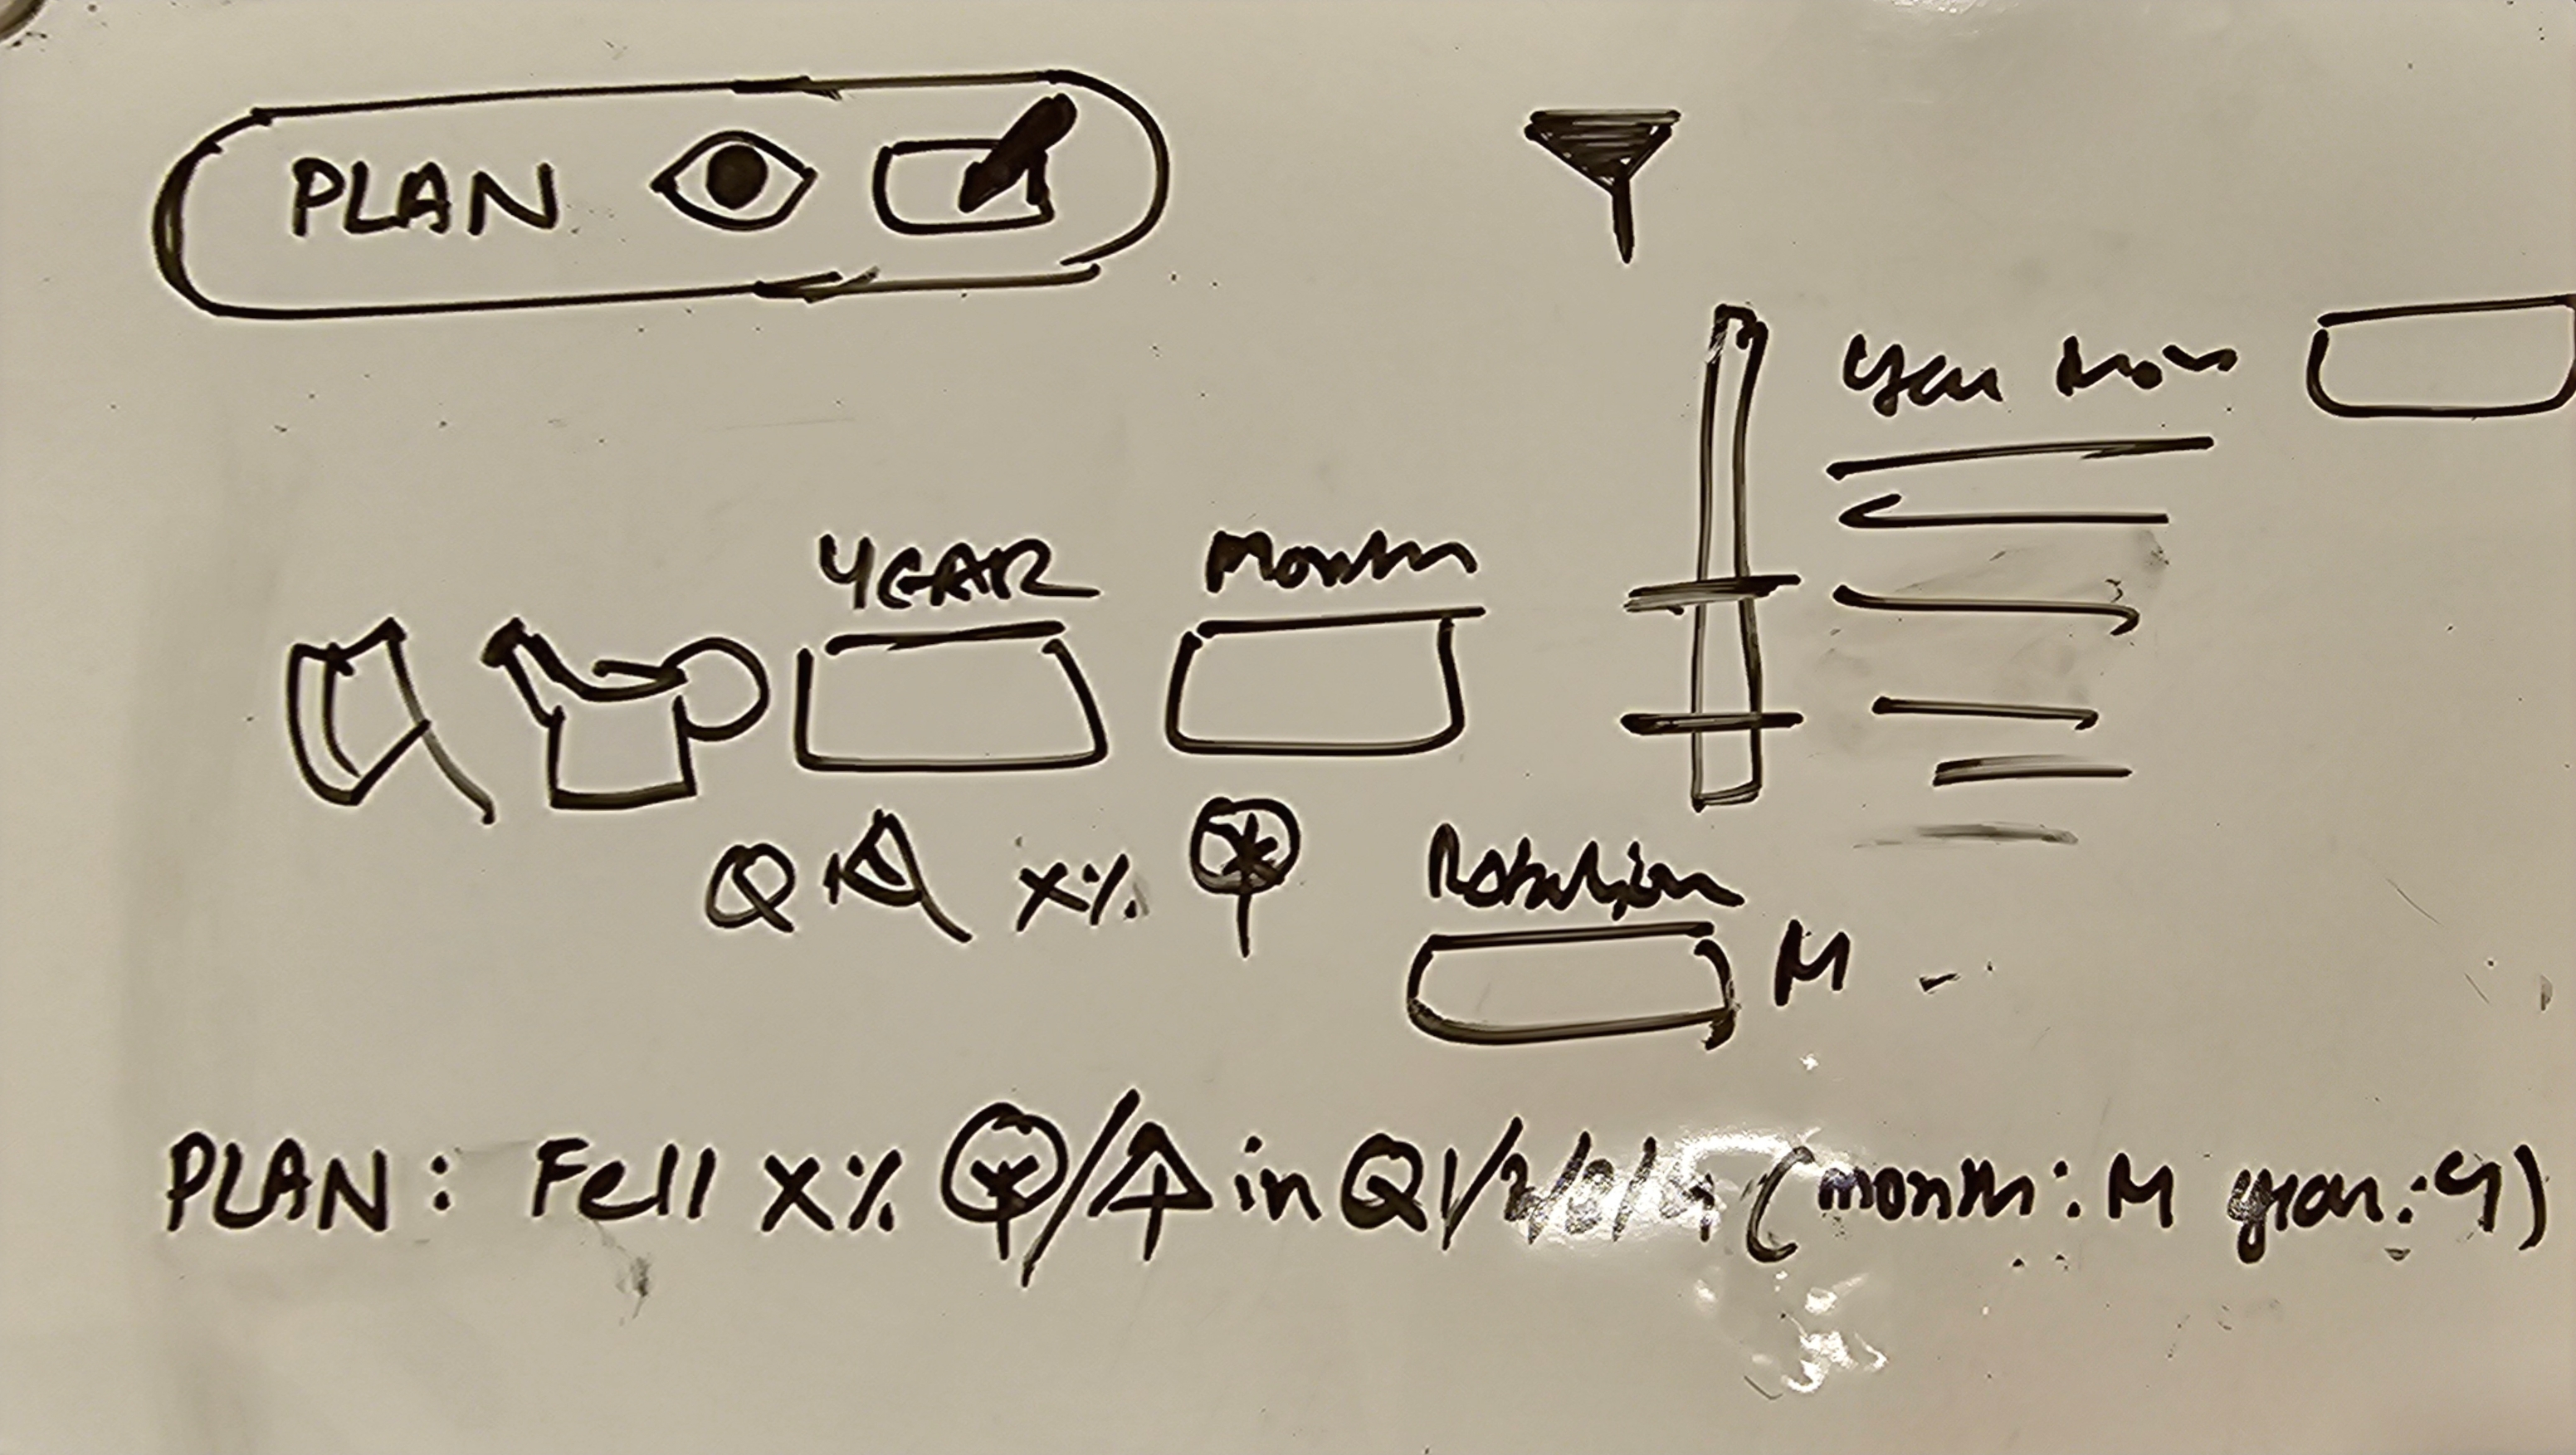 PLAN
Year Mon
YEAR Month
Q X%
Rotation
M
PLAN: Fell X% / in Q1/2/3/4 (month: M year: Y)